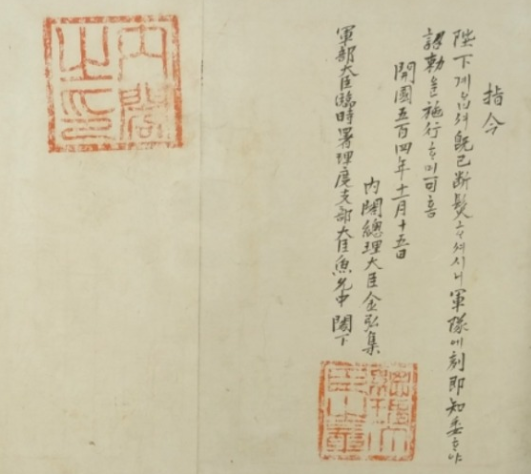 指令
陛下게ᄋᆞᆸ셔旣已断髮ᄒᆞ셔시니軍隊에刻卽知委ᄒᆞ야
詔勅을施行ᄒᆞ미可홈
開國五百四年十一月十五日
內閣總理大臣金弘集
軍部大臣臨時署理度支部大臣魚允中 閣下
內閣之印